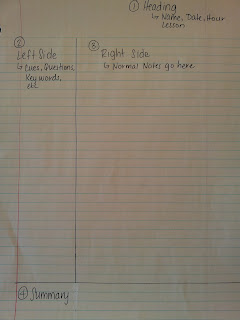 ① Heading
↳ Name, Date, Hour
Lesson
②
Left Side
↳ Cues, Questions,
Key words,
etc
③
Right Side
↳ Normal Notes go here
④ Summary